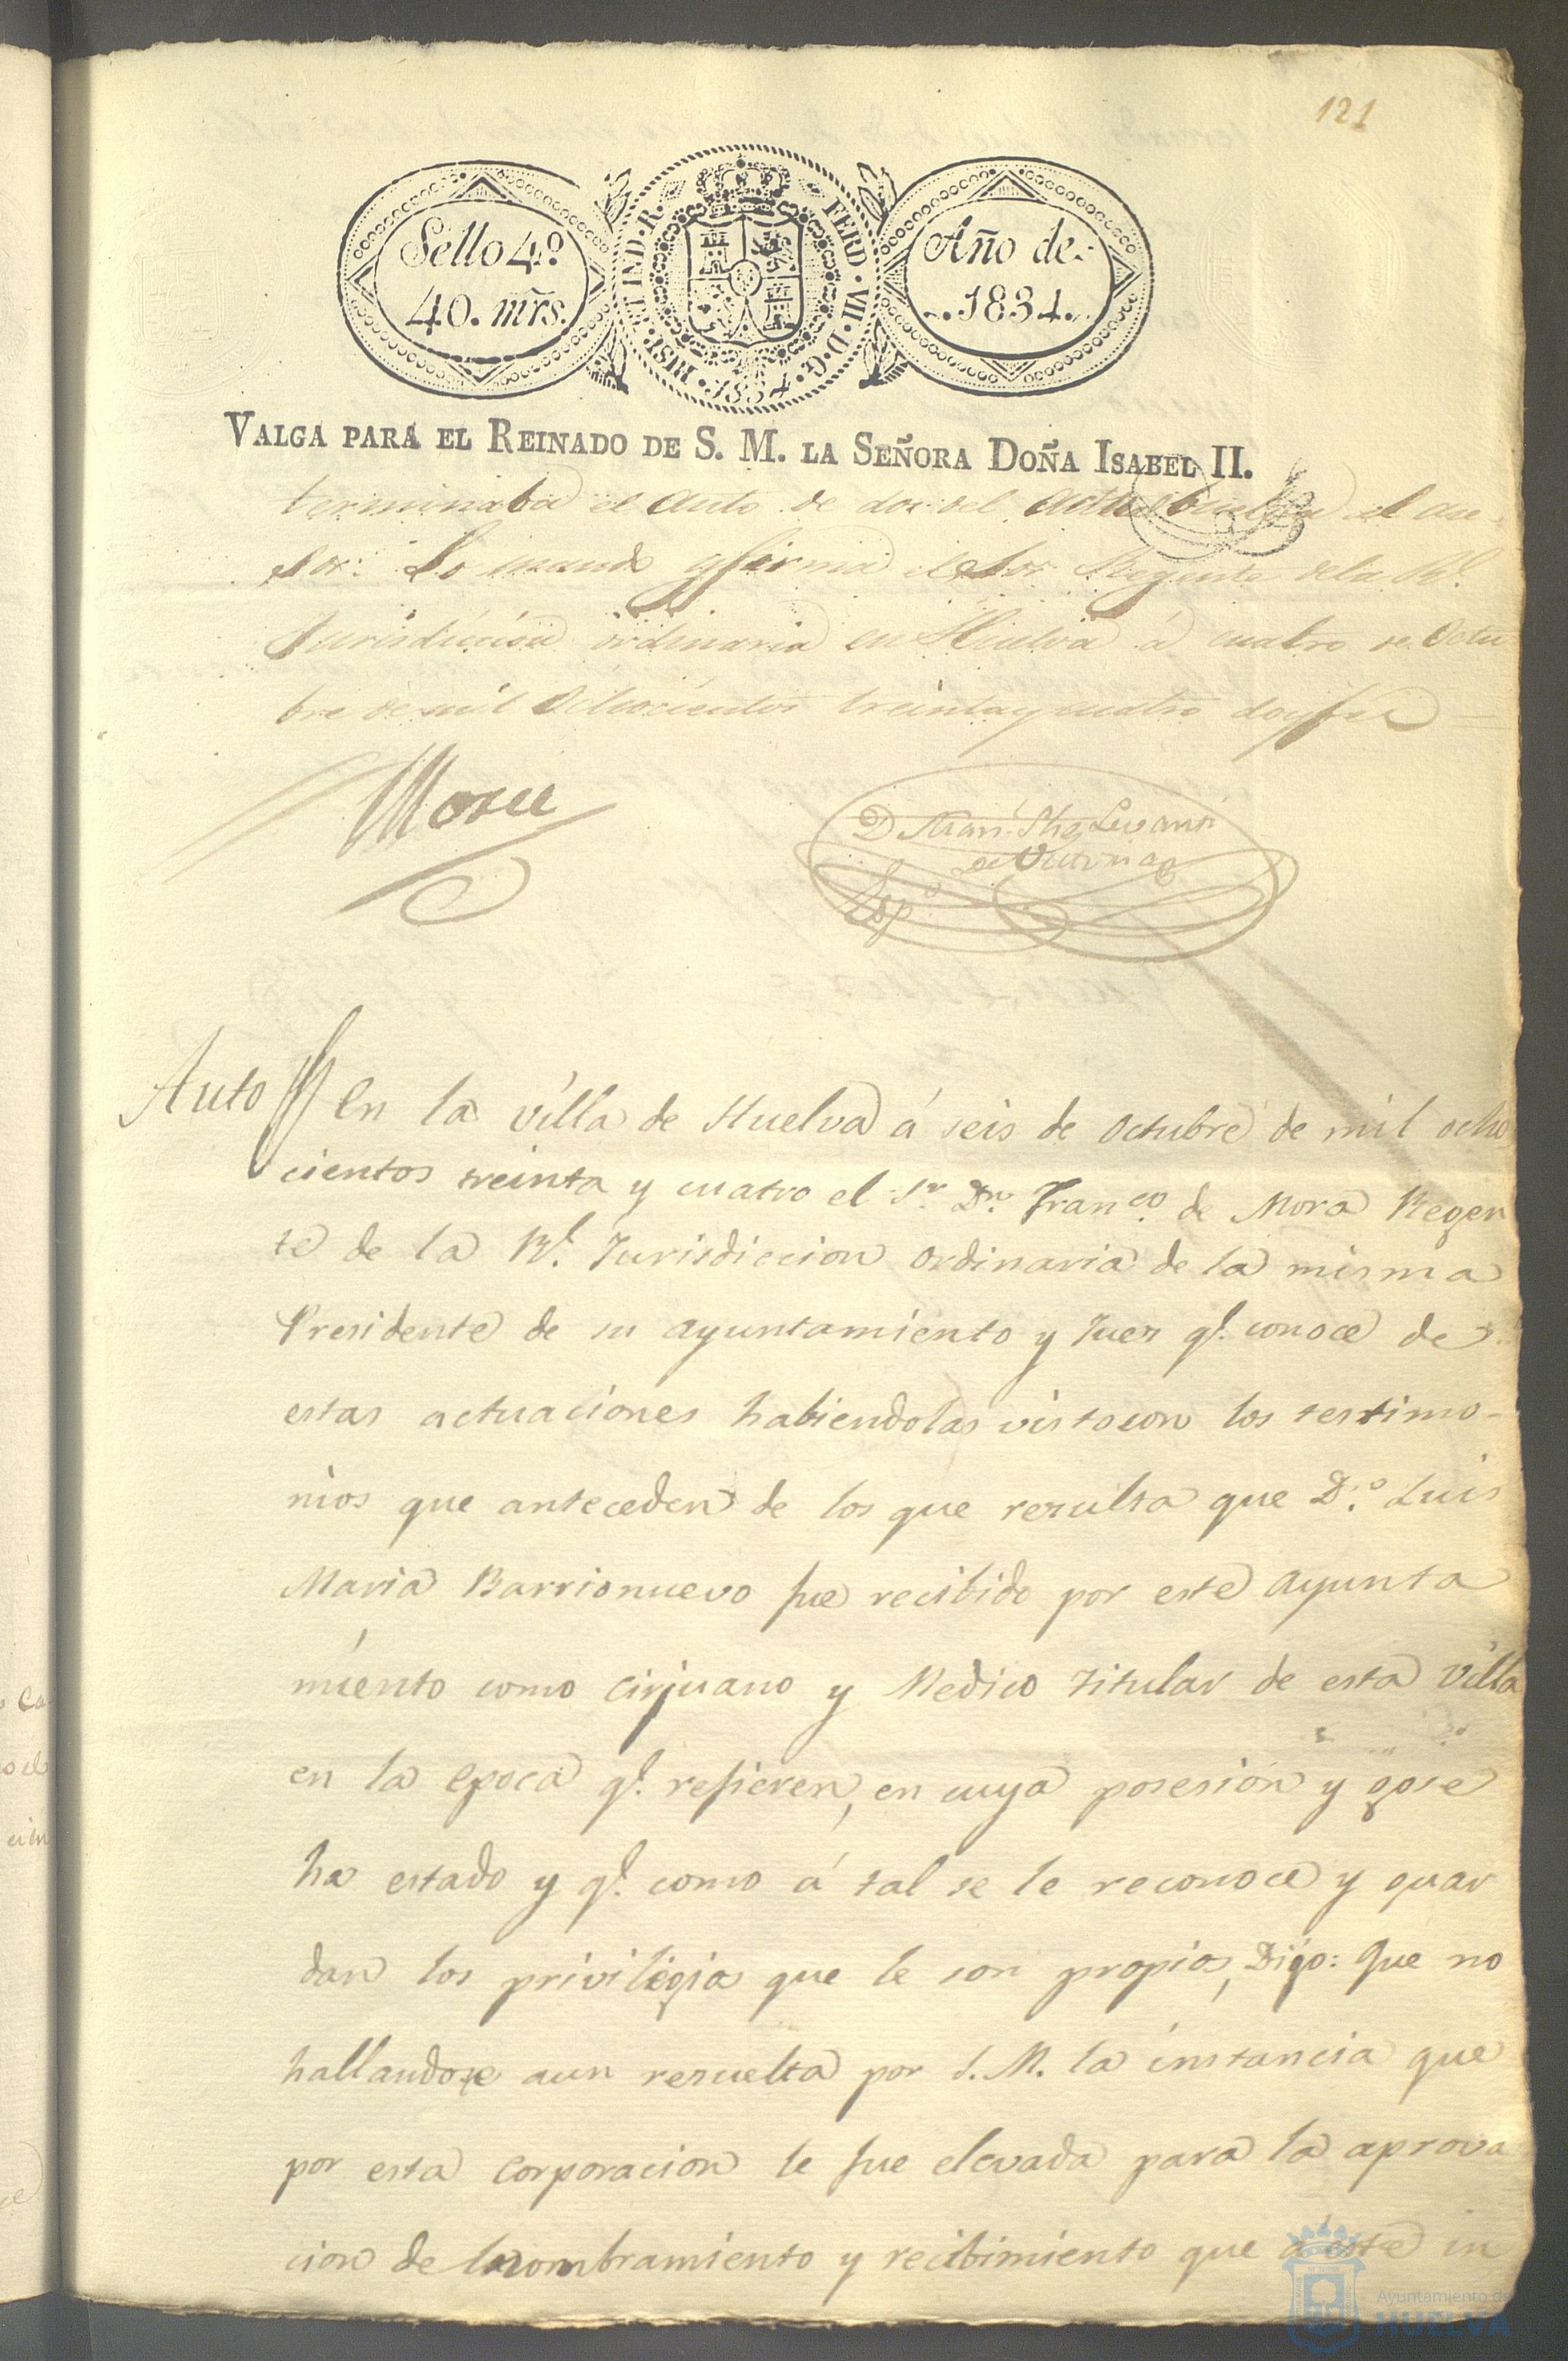 121
Sello 4º.
40. mrs.
HISP. ET IND. R.
FERD. VII. D. G.
1834.
Año de
1834.
VALGA PARA EL REINADO DE S. M. LA SEÑORA DOÑA ISABEL II.
terminaba el auto de dos del actual el ase-
sor: Lo mandó y firma el Sor Regente de la Rl.
Jurisdiccion ordinaria en Huelva á cuatro de Octu
bre de mil ochocientos treinta y cuatro doy fee =
Mora
Espº
Auto
En la villa de Huelva á seis de Octubre de mil ocho
cientos treinta y cuatro el Sr. Dn. Franco. de Mora Regen
te de la Rl. Jurisdiccion Ordinaria de la misma
Presidente de su ayuntamiento y Juez ql. conoce de
estas actuaciones habiendolas visto con los testimo-
nios que anteceden de los que resulta que Dº. Luis
Maria Barrionuevo fue recibido por este ayunta
miento como Cirjuano y Medico titular de esta villa
en la epoca ql. refieren, en cuya posesión y gose
ha estado y ql. como á tal se le reconoce y guar
dan los privilegios que le son propios, Dijo: Que no
hallandose aun resuelta por S. M. la instancia que
por esta Corporacion le fue elevada para la aprova
cion de nombramiento y recibimiento que á este in
Ayuntamiento de
HUELVA